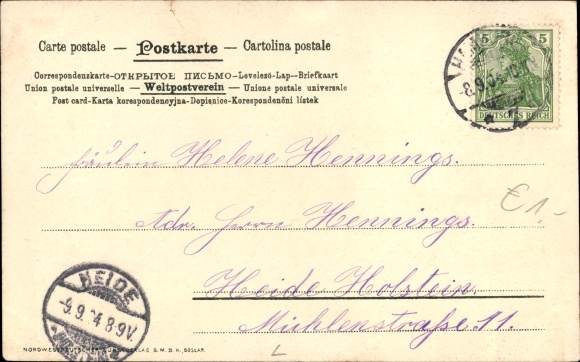 Carte postale — Postkarte — Cartolina postale
Correspondenzkarte-ОТКРЫТОЕ ПИСЬМО-Levelező-Lap-Briefkaart
Union postale universelle — Weltpostverein — Unione postale universale
Post card-Karta korespondencyjna-Dopisnice-Korespondenční lístek
5 5
DEUTSCHES REICH
8.9.04
Fräulein Helene Hennings.
Adr. Herrn Hennings.
€1.-
Heide Holstein.
Mühlenstraße 11.
HEIDE
-9.9.04 8-9V.
NORDWESTDEUTSCHER KUNSTVERLAG G.M.B.H. GOSLAR.